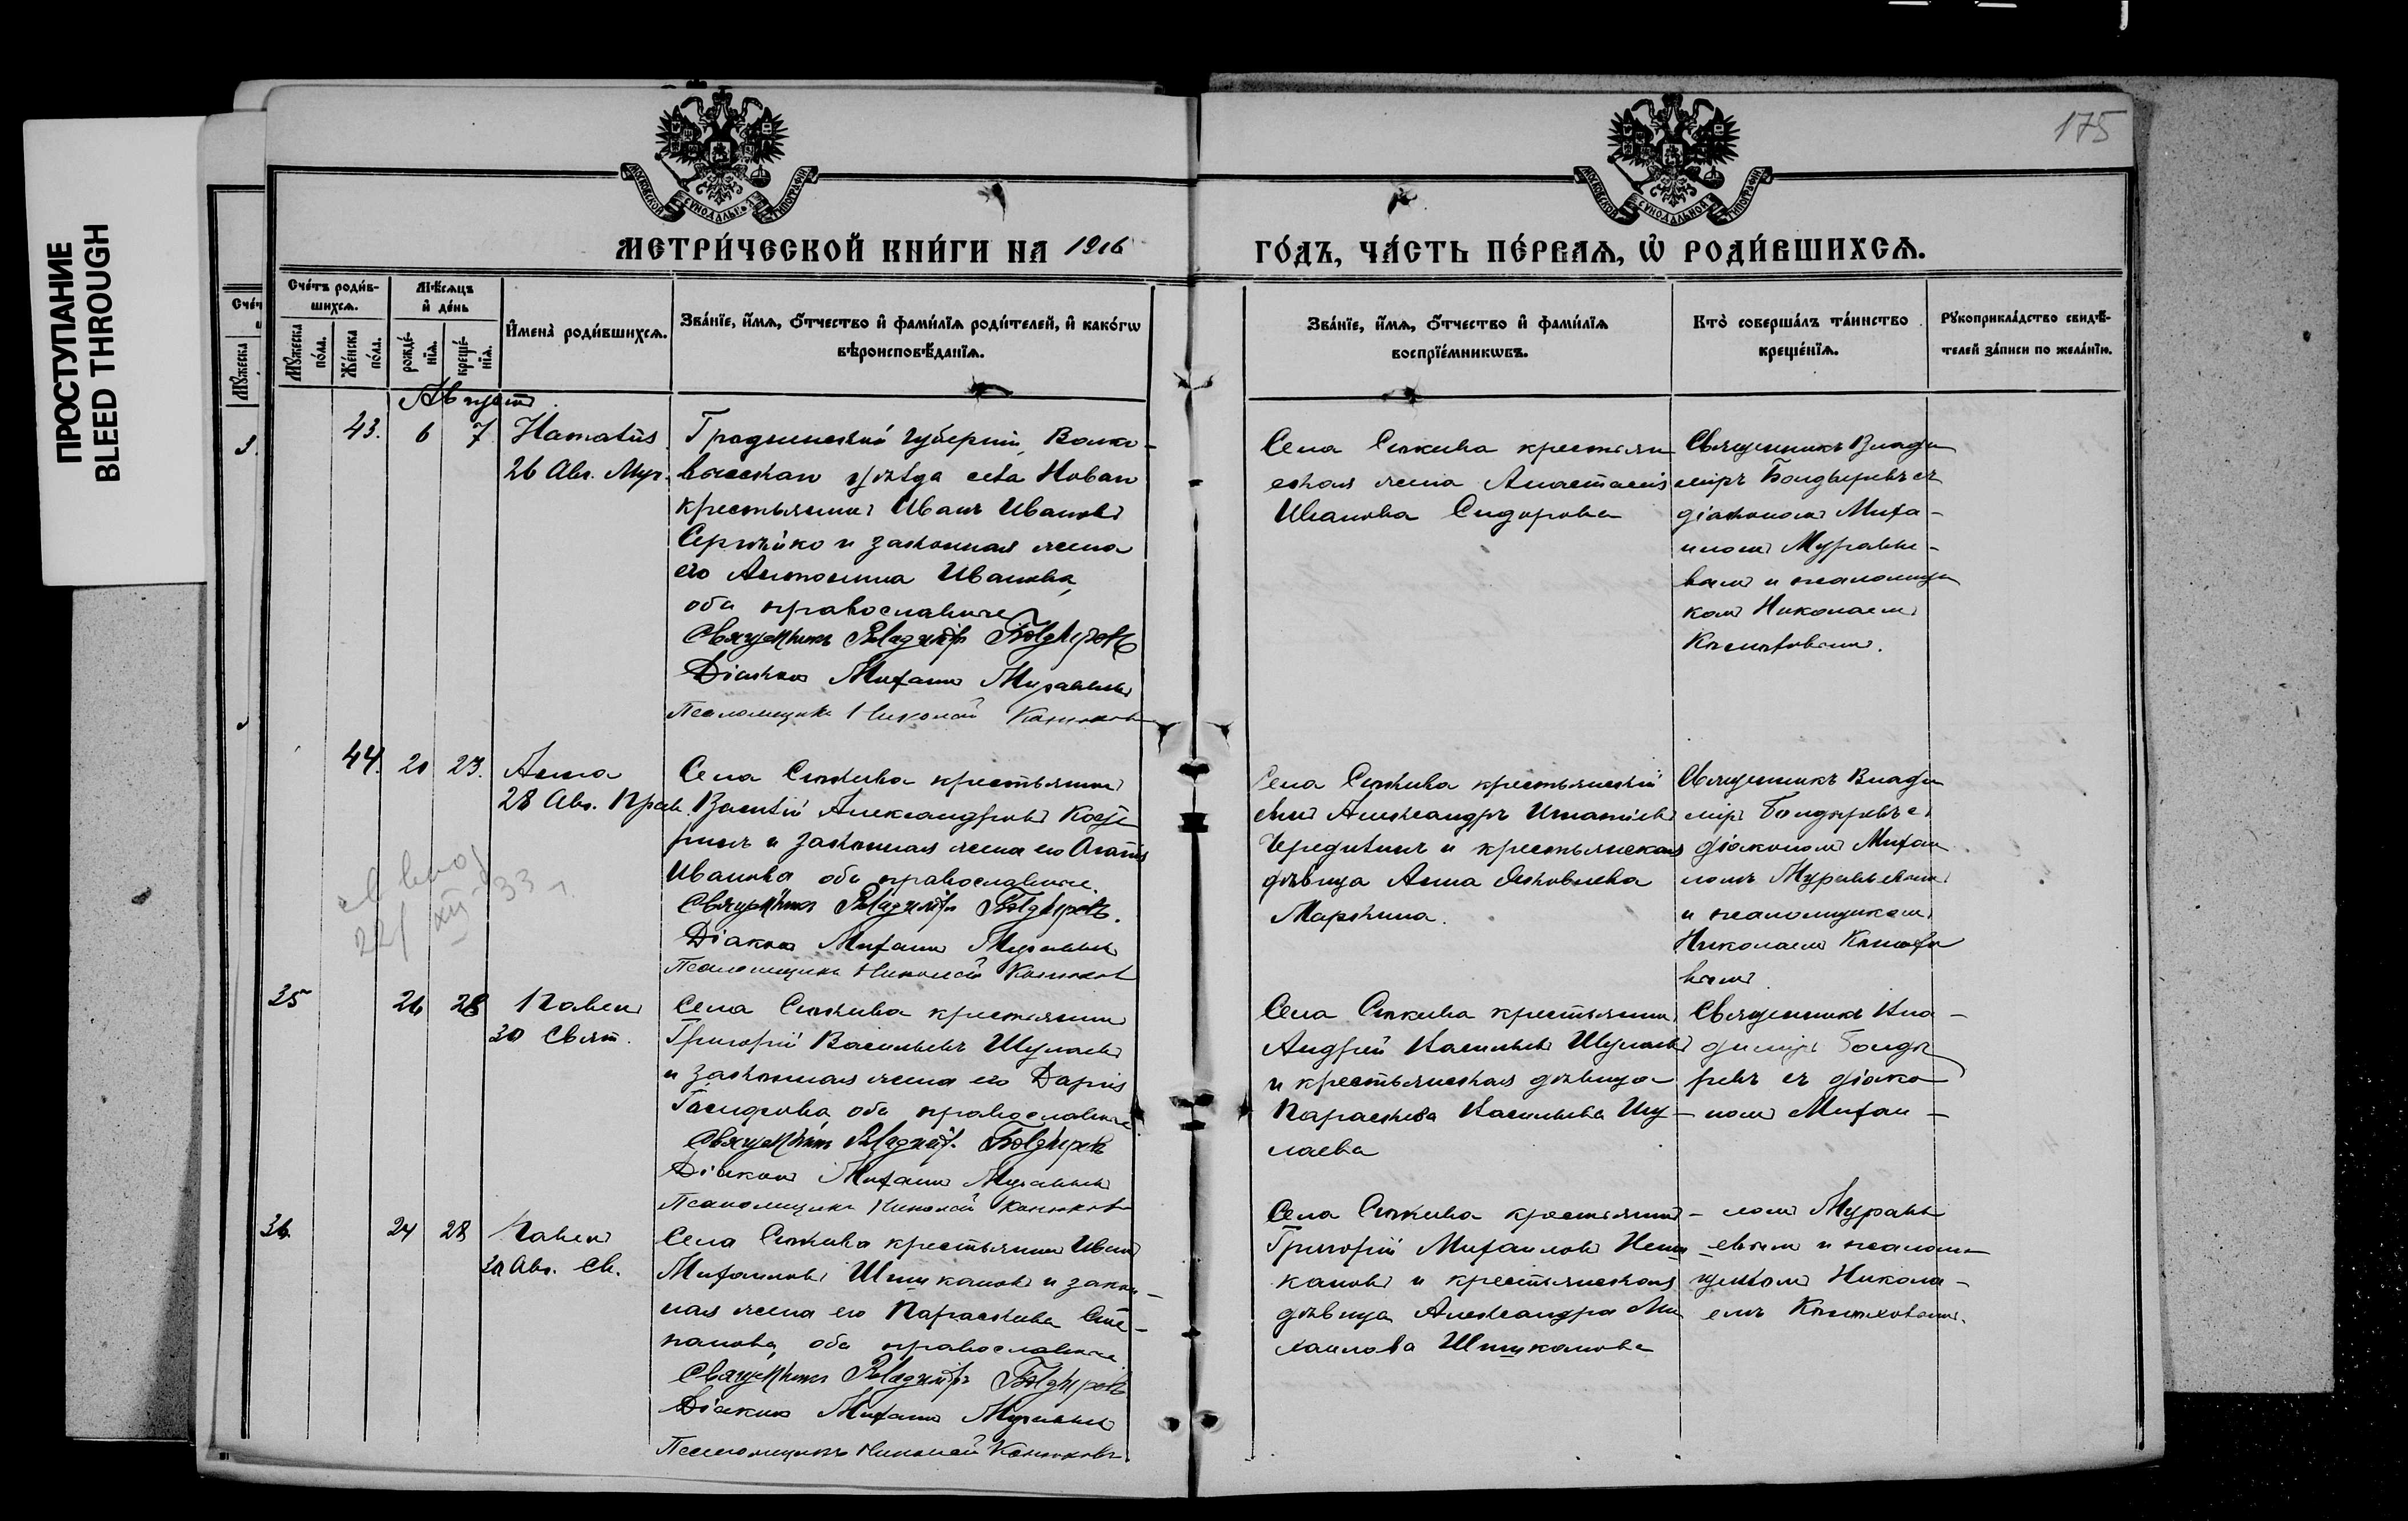 ПРОСТУПАНИЕ
BLEED THROUGH
175
МЕТРИ́ЧЕСКОЙ КНИ́ГИ НА 1916
ГО́ДЪ, ЧА́СТЬ ПЕ́РВАѦ, Ѡ РОДИ́ВШИХСѦ.
Сче́тъ роди́в-
шихсѧ.
Мꙋжеска по́ла.
Же́нска по́ла.
Мѣ́сѧцъ и҆ де́нь
рожде́-нїѧ.
креще́-нїѧ.
И҆мена̀ роди́вшихсѧ.
Зва́нїе, и҆́мѧ, ѻ҆́тчество и҆ фами́лїѧ роди́телей, и҆ како́гѡ
вѣроисповѣ́данїѧ.
Зва́нїе, и҆́мѧ, ѻ҆́тчество и҆ фами́лїѧ
воспрїе́мникѡвъ.
Кто̀ соверша́лъ та́инство
креще́нїѧ.
Рꙋкоприкла́дство свидѣ́-
телей за́писи по жела́нїю.
Августъ
43. 6 7 Наталія
26 Авг. Муч.
Гродненской губерніи, Волко-
выскаго уѣзда села
крестьянинъ Иванъ Ивановъ
и законная жена
его Антонина Иванова,
оба православные
Священникъ Владиміръ Бондыревъ
Діаконъ Михаилъ Муравьевъ
Псаломщикъ Николай Конюховъ
Села крестьян
ская жена Анастасія
Иванова Сидорова
Священникъ Влади
міръ Бондыревъ съ
діакономъ Миха-
иломъ Муравье-
вымъ и псаломщи
комъ Николаемъ
Конюховымъ.
44. 20 23. Анна
28 Авг. Прав.
Села крестьянинъ
Василій Александровъ
и законная жена его Агафія
Иванова оба православные.
Священникъ Владиміръ Бондыревъ.
Діаконъ Михаилъ Муравьевъ
Псаломщикъ Николай Конюховъ
Села крестьянскій
Александръ Игнатіевъ
и крестьянская
дѣвица Анна Яковлева
Маркина.
Священникъ Влади
міръ Бондыревъ съ
діакономъ Михаи
ломъ Муравьевымъ
и псаломщикомъ
Николаемъ Конюхо
вымъ
35 26 28 Павелъ
30 Свят.
Села крестьянинъ
Григорій Васильевъ Шулаевъ
и законная жена его Дарія
оба православные
Священникъ Владиміръ Бондыревъ
Діаконъ Михаилъ Муравьевъ
Псаломщикъ Николай Конюховъ
Села крестьянинъ
Андрей Васильевъ Шулаевъ
и крестьянская дѣвица
Параскева Васильева Шу-
лаева
Священникъ Вла-
диміръ Бонды
ревъ съ діако
номъ Михаи-
36. 24 28 Павелъ
30 Авг. Св.
Села крестьянинъ Иванъ
Михаиловъ и закон-
ная жена его Параскева Сте-
панова, оба православные
Священникъ Владиміръ Бондыревъ
Діаконъ Михаилъ Муравьевъ
Псаломщикъ Николай Конюховъ.
Села крестьянинъ
Григорій Михаиловъ
и крестьянская
дѣвица Александра Ми
хаилова
ломъ Муравь
евымъ и псалом
щикомъ Никола-
емъ Конюховымъ.